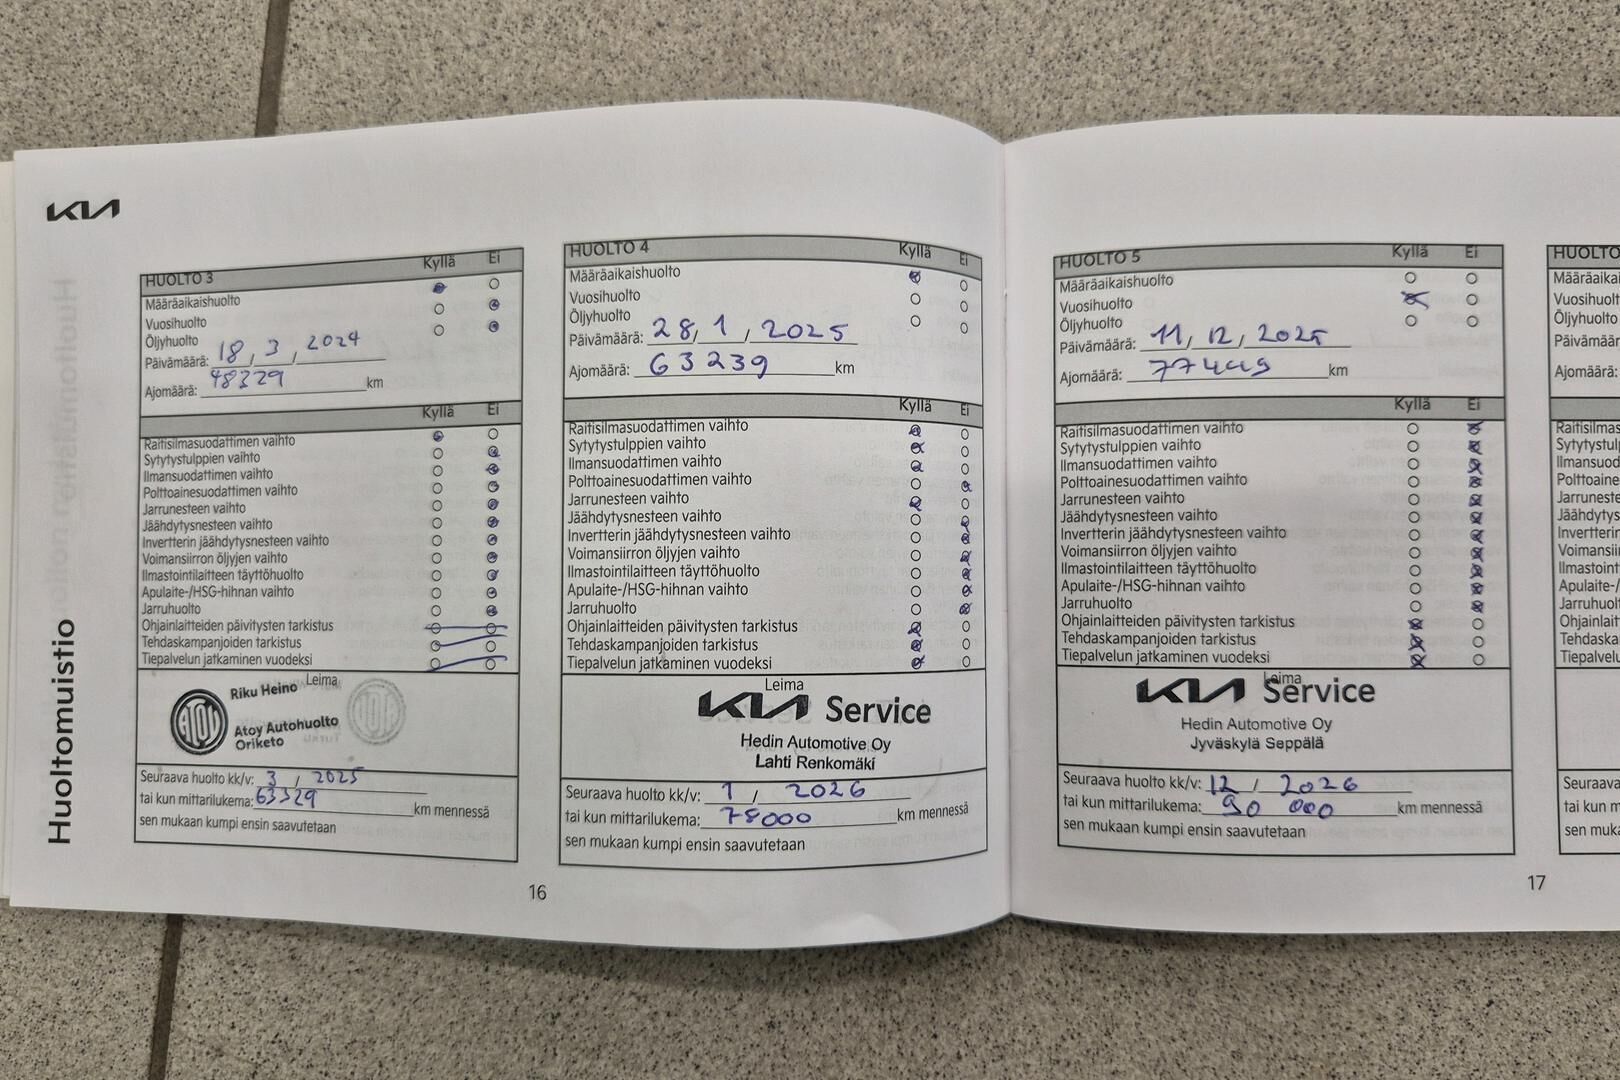 KIA
Huoltomuistio
HUOLTO 3 Kyllä Ei
Määräaikaishuolto
Vuosihuolto
Öljyhuolto
Päivämäärä: 18, 3, 2024
Ajomäärä: 48329 km
Kyllä Ei
Raitisilmasuodattimen vaihto
Sytytystulppien vaihto
Ilmansuodattimen vaihto
Polttoainesuodattimen vaihto
Jarrunesteen vaihto
Jäähdytysnesteen vaihto
Invertterin jäähdytysnesteen vaihto
Voimansiirron öljyjen vaihto
Ilmastointilaitteen täyttöhuolto
Apulaite-/HSG-hihnan vaihto
Jarruhuolto
Ohjainlaitteiden päivitysten tarkistus
Tehdaskampanjoiden tarkistus
Tiepalvelun jatkaminen vuodeksi
Leima
Riku Heino
Atoy Autohuolto
Oriketo
Seuraava huolto kk/v: 3 / 2025
tai kun mittarilukema: 63329 km mennessä
sen mukaan kumpi ensin saavutetaan
HUOLTO 4 Kyllä Ei
Määräaikaishuolto
Vuosihuolto
Öljyhuolto
Päivämäärä: 28, 1, 2025
Ajomäärä: 63239 km
Kyllä Ei
Raitisilmasuodattimen vaihto
Sytytystulppien vaihto
Ilmansuodattimen vaihto
Polttoainesuodattimen vaihto
Jarrunesteen vaihto
Jäähdytysnesteen vaihto
Invertterin jäähdytysnesteen vaihto
Voimansiirron öljyjen vaihto
Ilmastointilaitteen täyttöhuolto
Apulaite-/HSG-hihnan vaihto
Jarruhuolto
Ohjainlaitteiden päivitysten tarkistus
Tehdaskampanjoiden tarkistus
Tiepalvelun jatkaminen vuodeksi
Leima
KIA Service
Hedin Automotive Oy
Lahti Renkomäki
Seuraava huolto kk/v: 1 / 2026
tai kun mittarilukema: 78000 km mennessä
sen mukaan kumpi ensin saavutetaan
16
HUOLTO 5 Kyllä Ei
Määräaikaishuolto
Vuosihuolto
Öljyhuolto
Päivämäärä: 11, 12, 2025
Ajomäärä: 77449 km
Kyllä Ei
Raitisilmasuodattimen vaihto
Sytytystulppien vaihto
Ilmansuodattimen vaihto
Polttoainesuodattimen vaihto
Jarrunesteen vaihto
Jäähdytysnesteen vaihto
Invertterin jäähdytysnesteen vaihto
Voimansiirron öljyjen vaihto
Ilmastointilaitteen täyttöhuolto
Apulaite-/HSG-hihnan vaihto
Jarruhuolto
Ohjainlaitteiden päivitysten tarkistus
Tehdaskampanjoiden tarkistus
Tiepalvelun jatkaminen vuodeksi
Leima
KIA Service
Hedin Automotive Oy
Jyväskylä Seppälä
Seuraava huolto kk/v: 12 / 2026
tai kun mittarilukema: 90 000 km mennessä
sen mukaan kumpi ensin saavutetaan
17
HUOLTO
Määräaika
Vuosihuolt
Öljyhuolto
Päivämäär
Ajomäärä:
Raitisilmas
Sytytystul
Ilmansuod
Polttoaine
Jarruneste
Jäähdytys
Invertterin
Voimansii
Ilmastoint
Apulaite-/
Jarruhuol
Ohjainlait
Tehdaska
Tiepalvelu
Seuraava
tai kun m
sen muka